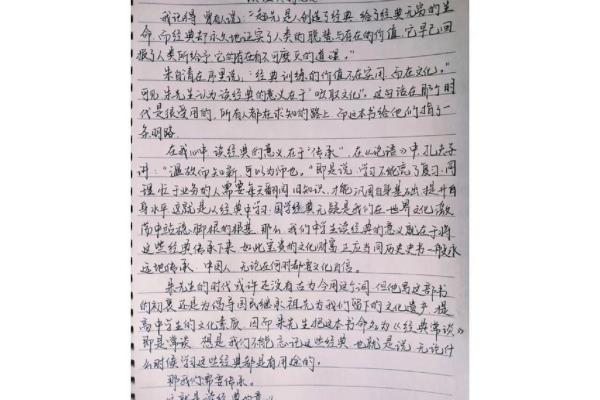 我记得曾有人说:“起先是人创造了经典,给了经典无穷的生
命,而经典却永久地证实了人类的聪慧与存在的价值,它早已回
报了人类所给予它的存在有不可磨灭的道理。”
朱自清在序里说:“经典训练的价值不在实用,而在文化。”
可见朱先生认为读经典的意义在于“吸取文化”。这句话在那个时
代是很受用的,所有人都在求知的路上,而这本书给他们指了一
条明路。
在我心中,读经典的意义在于“传承”,在《论语》中,孔夫子
讲:“温故而知新,可以为师也。”即是说,学习不能离了复习,同
理,忙于业务的人需要每天翻阅旧知识,才能巩固自身基础,提升自
身水平,这就是从经典中学习,国学经典无疑是我们在世界文化激
荡中站稳脚根的根基,那么,我们中学生读经典的意义就在于将
这些经典传承下来,如此宝贵的文化财富,正应当同历史书一般永
远地传承,中国人,无论在何时都需文化自信。
朱先生的时代或许还没有古为今用这个词,但他写这部书
的初衷,还是为倡导国民继承祖先为我们留下的文化遗产,提
高中学生的文化素质,因而朱先生把这本书命名为《经典常谈》
即是常谈,想是我们不能忘记这些经典,也就是说,无论什
么时候学习这些经典都是有用途的。
那我们需要传承。
这就是读经典的意义